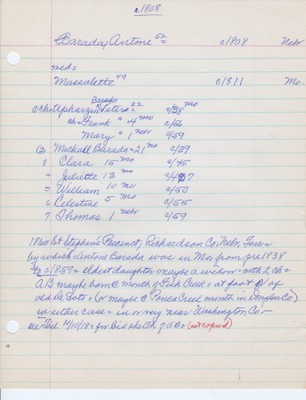 c1808
Barada, Antone 52 c1808 Nebr
mcho
Massalette 49 c1811 Mo.
Peters 22 c/38 mo
ch Frank 4 mo c/56
Mary 1 nebr c/59
Michall Barada 21 mo c/39
" Clara 15 mo c/45
" Juliette 13 mo c/47
" William 10 mo c/50
" Celestine 5 mo c/55
7 Thomas 1 nebr c/59
1860 St Stephens Precinct, Richardson Co, Nebr. Terr.
by which Antone Barada was in Mo from pre 1838
to c/1857 = eldest daughter maybe a widow = with 2 ch =
AB maybe born @ mouth of Fish Creek = at foot of
old (or maybe @ Ponca Creek mouth in Douglas Co)
in either case = in or very near Washington Co —
for bio sketch of AB = (not copied)